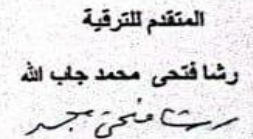 المتقدم للترقية
رشا فتحى محمد جاب الله
رشا فتحى محمد